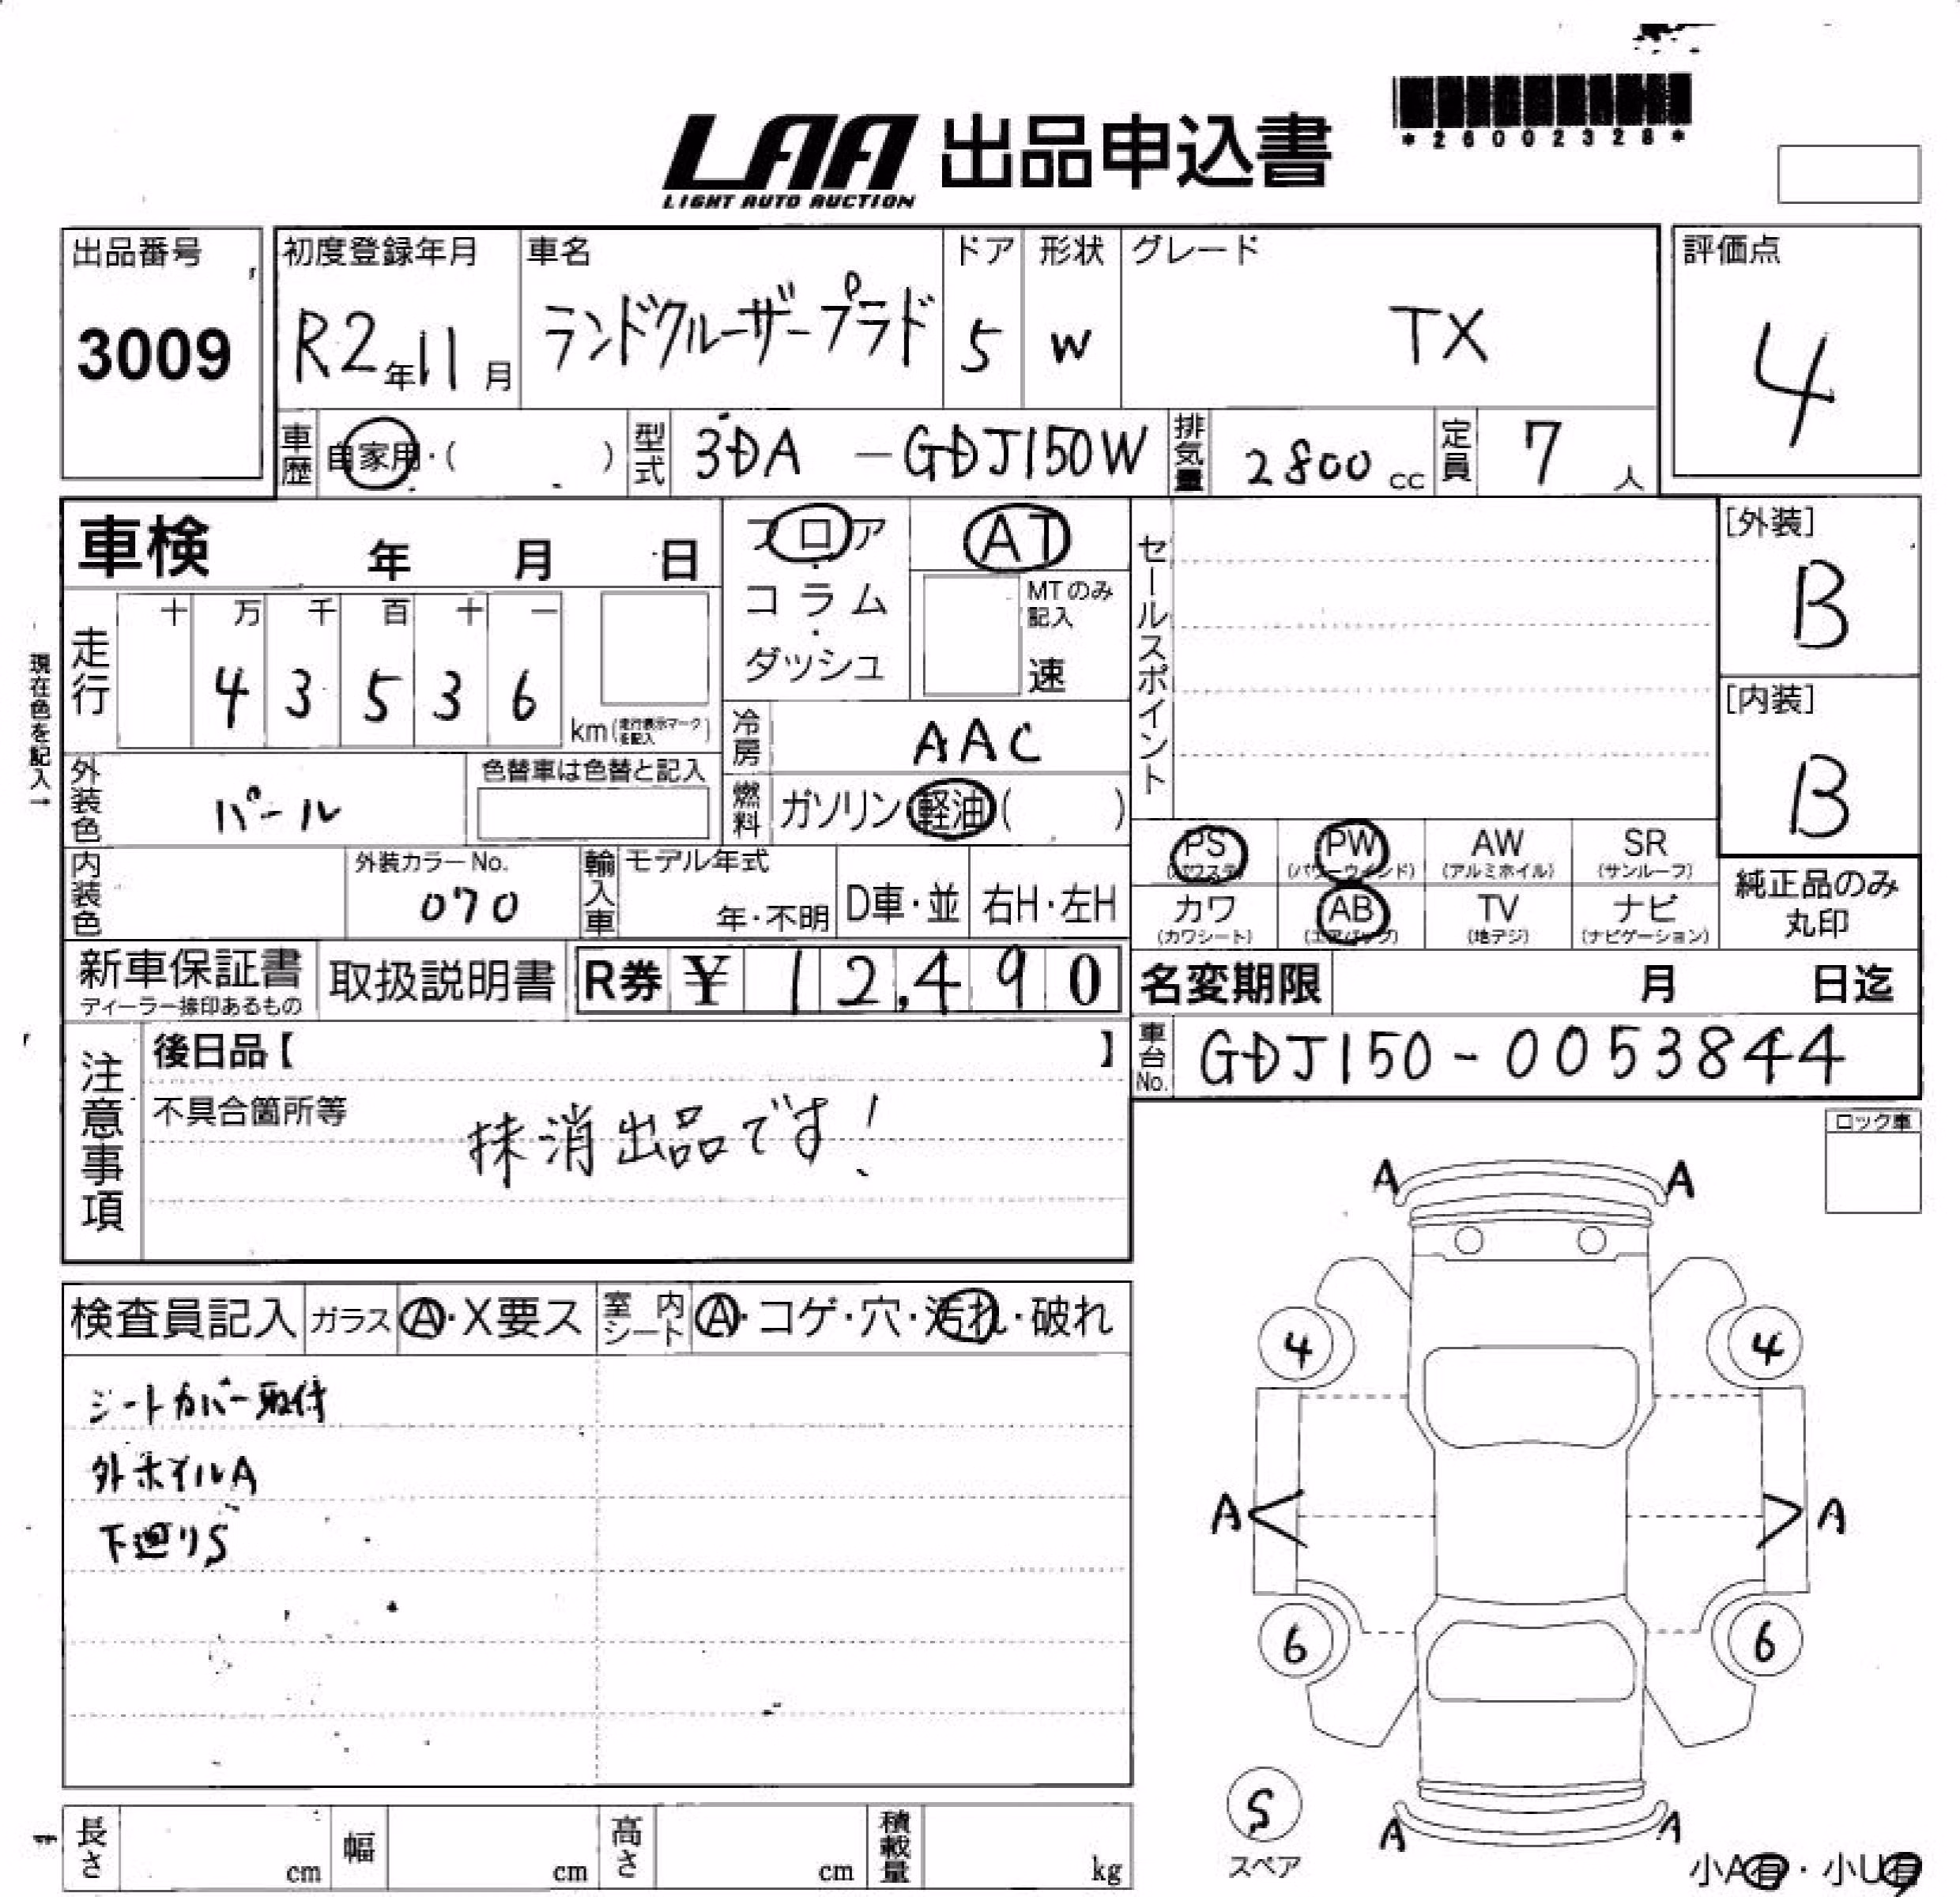 *26002328*
LAA 出品申込書
LIGHT AUTO AUCTION
出品番号
3009
初度登録年月
R2年11月
車名
ランドクルーザープラド
ドア
5
形状
W
グレード
TX
評価点
4
車歴 自家用・( )
型式 3DA-GDJ150W
排気量 2800cc
定員 7人
車検 年 月 日
フロア・コラム・ダッシュ
AT
MTのみ記入
速
セールスポイント
[外装]
B
[内装]
B
現在色を記入→
走行
十 万 千 百 十 一
4 3 5 3 6
km(走行表示マークを記入)
冷房 AAC
外装色 パール
色替車は色替と記入
燃料 ガソリン 軽油 ( )
内装色
外装カラーNo.
070
輸入車
モデル年式
年・不明
D車・並
右H・左H
PS (パワステ)
PW (パワーウインド)
AW (アルミホイル)
SR (サンルーフ)
カワ (カワシート)
AB (エアバッグ)
TV (地デジ)
ナビ (ナビゲーション)
純正品のみ
丸印
新車保証書
ディーラー捺印あるもの
取扱説明書
R券 ¥ 12,490
名変期限 月 日迄
車台No. GDJ150-0053844
注意事項
後日品【 】
不具合箇所等
抹消出品です!
ロック車
検査員記入
ガラス A・X要ス
室内シート A・コゲ・穴・汚れ・破れ
シートカバー取付
外ホイルA
下廻りS
A A
4 4
A A
6 6
S
スペア
A A
小A有・小U有
長さ cm
幅 cm
高さ cm
積載量 kg